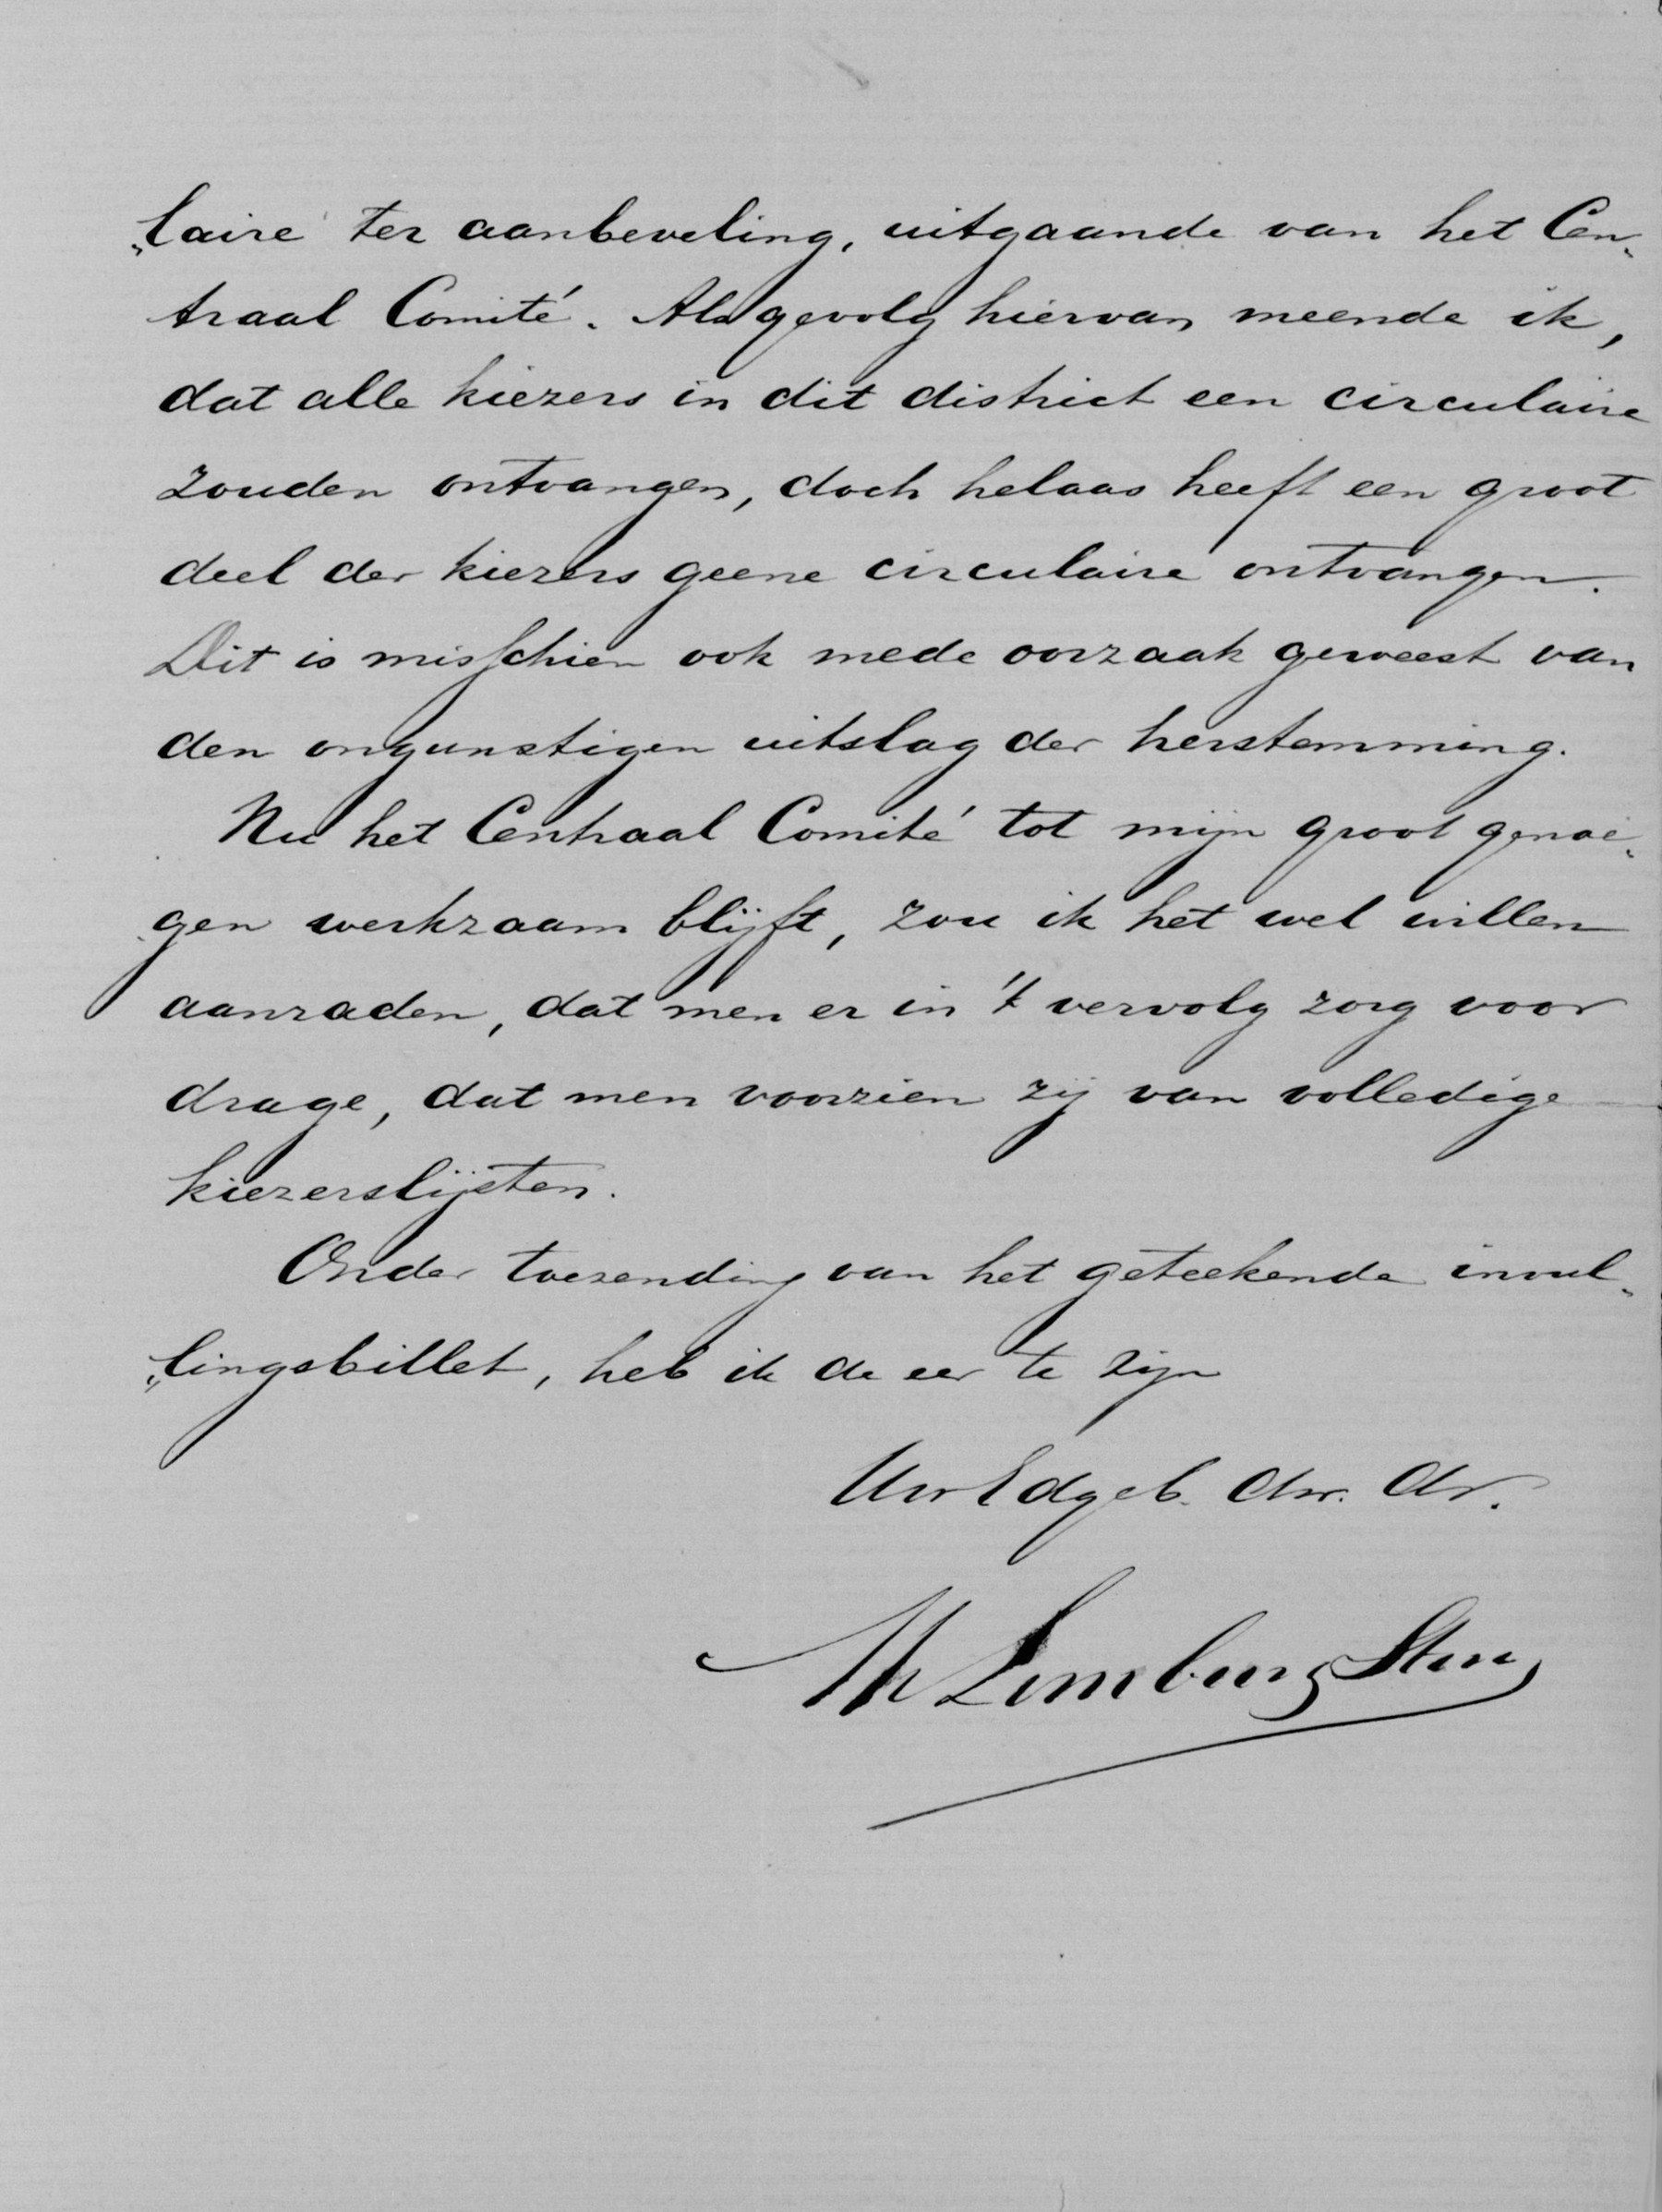 „laire ter aanbeveling, uitgaande van het Cen„
traal Comité. Als gevolg hiervan meende ik,
dat alle kiezers in dit district een circulaire
zouden ontvangen, doch helaas heeft een groot
deel der kiezers geene circulaire ontvangen.
Dit is misschien ook mede oorzaak geweest van
den ongunstigen uitslag der herstemming.
Nu het Centraal Comité tot mijn groot genoe„
gen werkzaam blijft, zou ik het wel willen
aanraden, dat men er in 't vervolg zorg voor
drage, dat men voorzien zij van volledige
kiezerslijsten.
Onder toezending van het geteekende invul„
„lingsbillet, heb ik de eer te zijn
Uw Edgeb. dw. dr.
Limburg